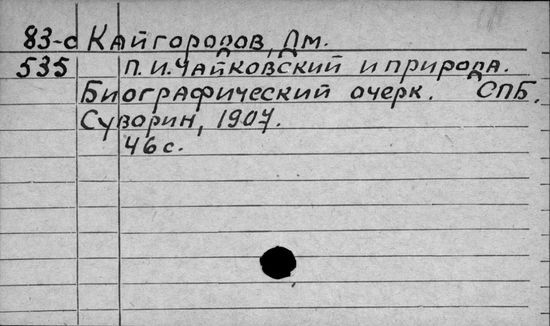 83-с Кайгородов, Дм.
535 П. И. Чайковский и природа.
Биографический очерк. СПБ.
Суворин, 1907.
46 с.